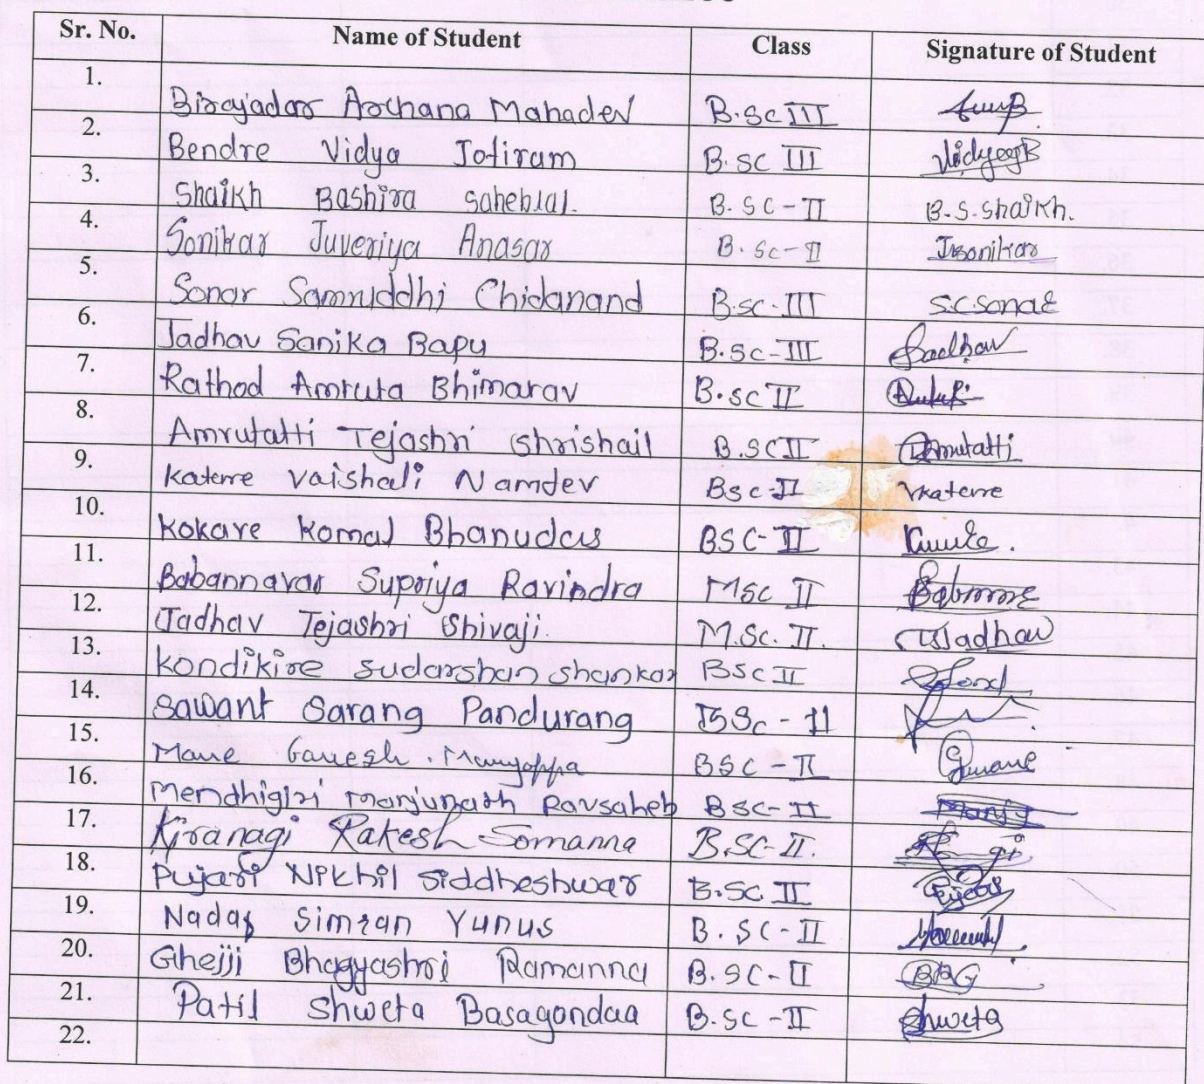 Sr. No. Name of Student Class Signature of Student
1. Birajadar Archana Mahadev B.Sc III
2. Bendre Vidya Jotiram B.sc III VidyaB
3. Shaikh Bashira saheblal. B.SC-II B.S.Shaikh.
4. Sonikar Juveriya Anasar B.Sc-II Jssonikar
5. Sonar Samruddhi Chidanand B.sc-III S.C.Sonar
6. Jadhav Sanika Bapu B.Sc-III Jadhav
7. Rathod Amruta Bhimarav B.sc II
8. Amrutatti Tejashri Shrishail B.SC II Amrutatti
9. Katerre Vaishali Namdev Bsc-II Vkaterre
10. Kokare Komal Bhanudas BSC-II
11. Babannavar Supriya Ravindra MSc II
12. Jadhav Tejashri Shivaji. M.Sc. II. TSJadhav
13. Kondikire sudarshan shankar BSc II
14. Sawant Sarang Pandurang BSc-II
15. Mane Ganesh. BSC-II Gmane
16. Mendhigiri manjunath Ravsaheb BSC-II Manju
17. Kiranagi Rakesh Somanna B.SC-II.
18. Pujari Nikhil Siddheshwar B.SC II
19. Nadaf Simran Yunus B.SC-II
20. Ghejji Bhagyashri Ramanna B.SC-II BRG
21. Patil Shweta Basagondaa B.SC-II Shweta
22.